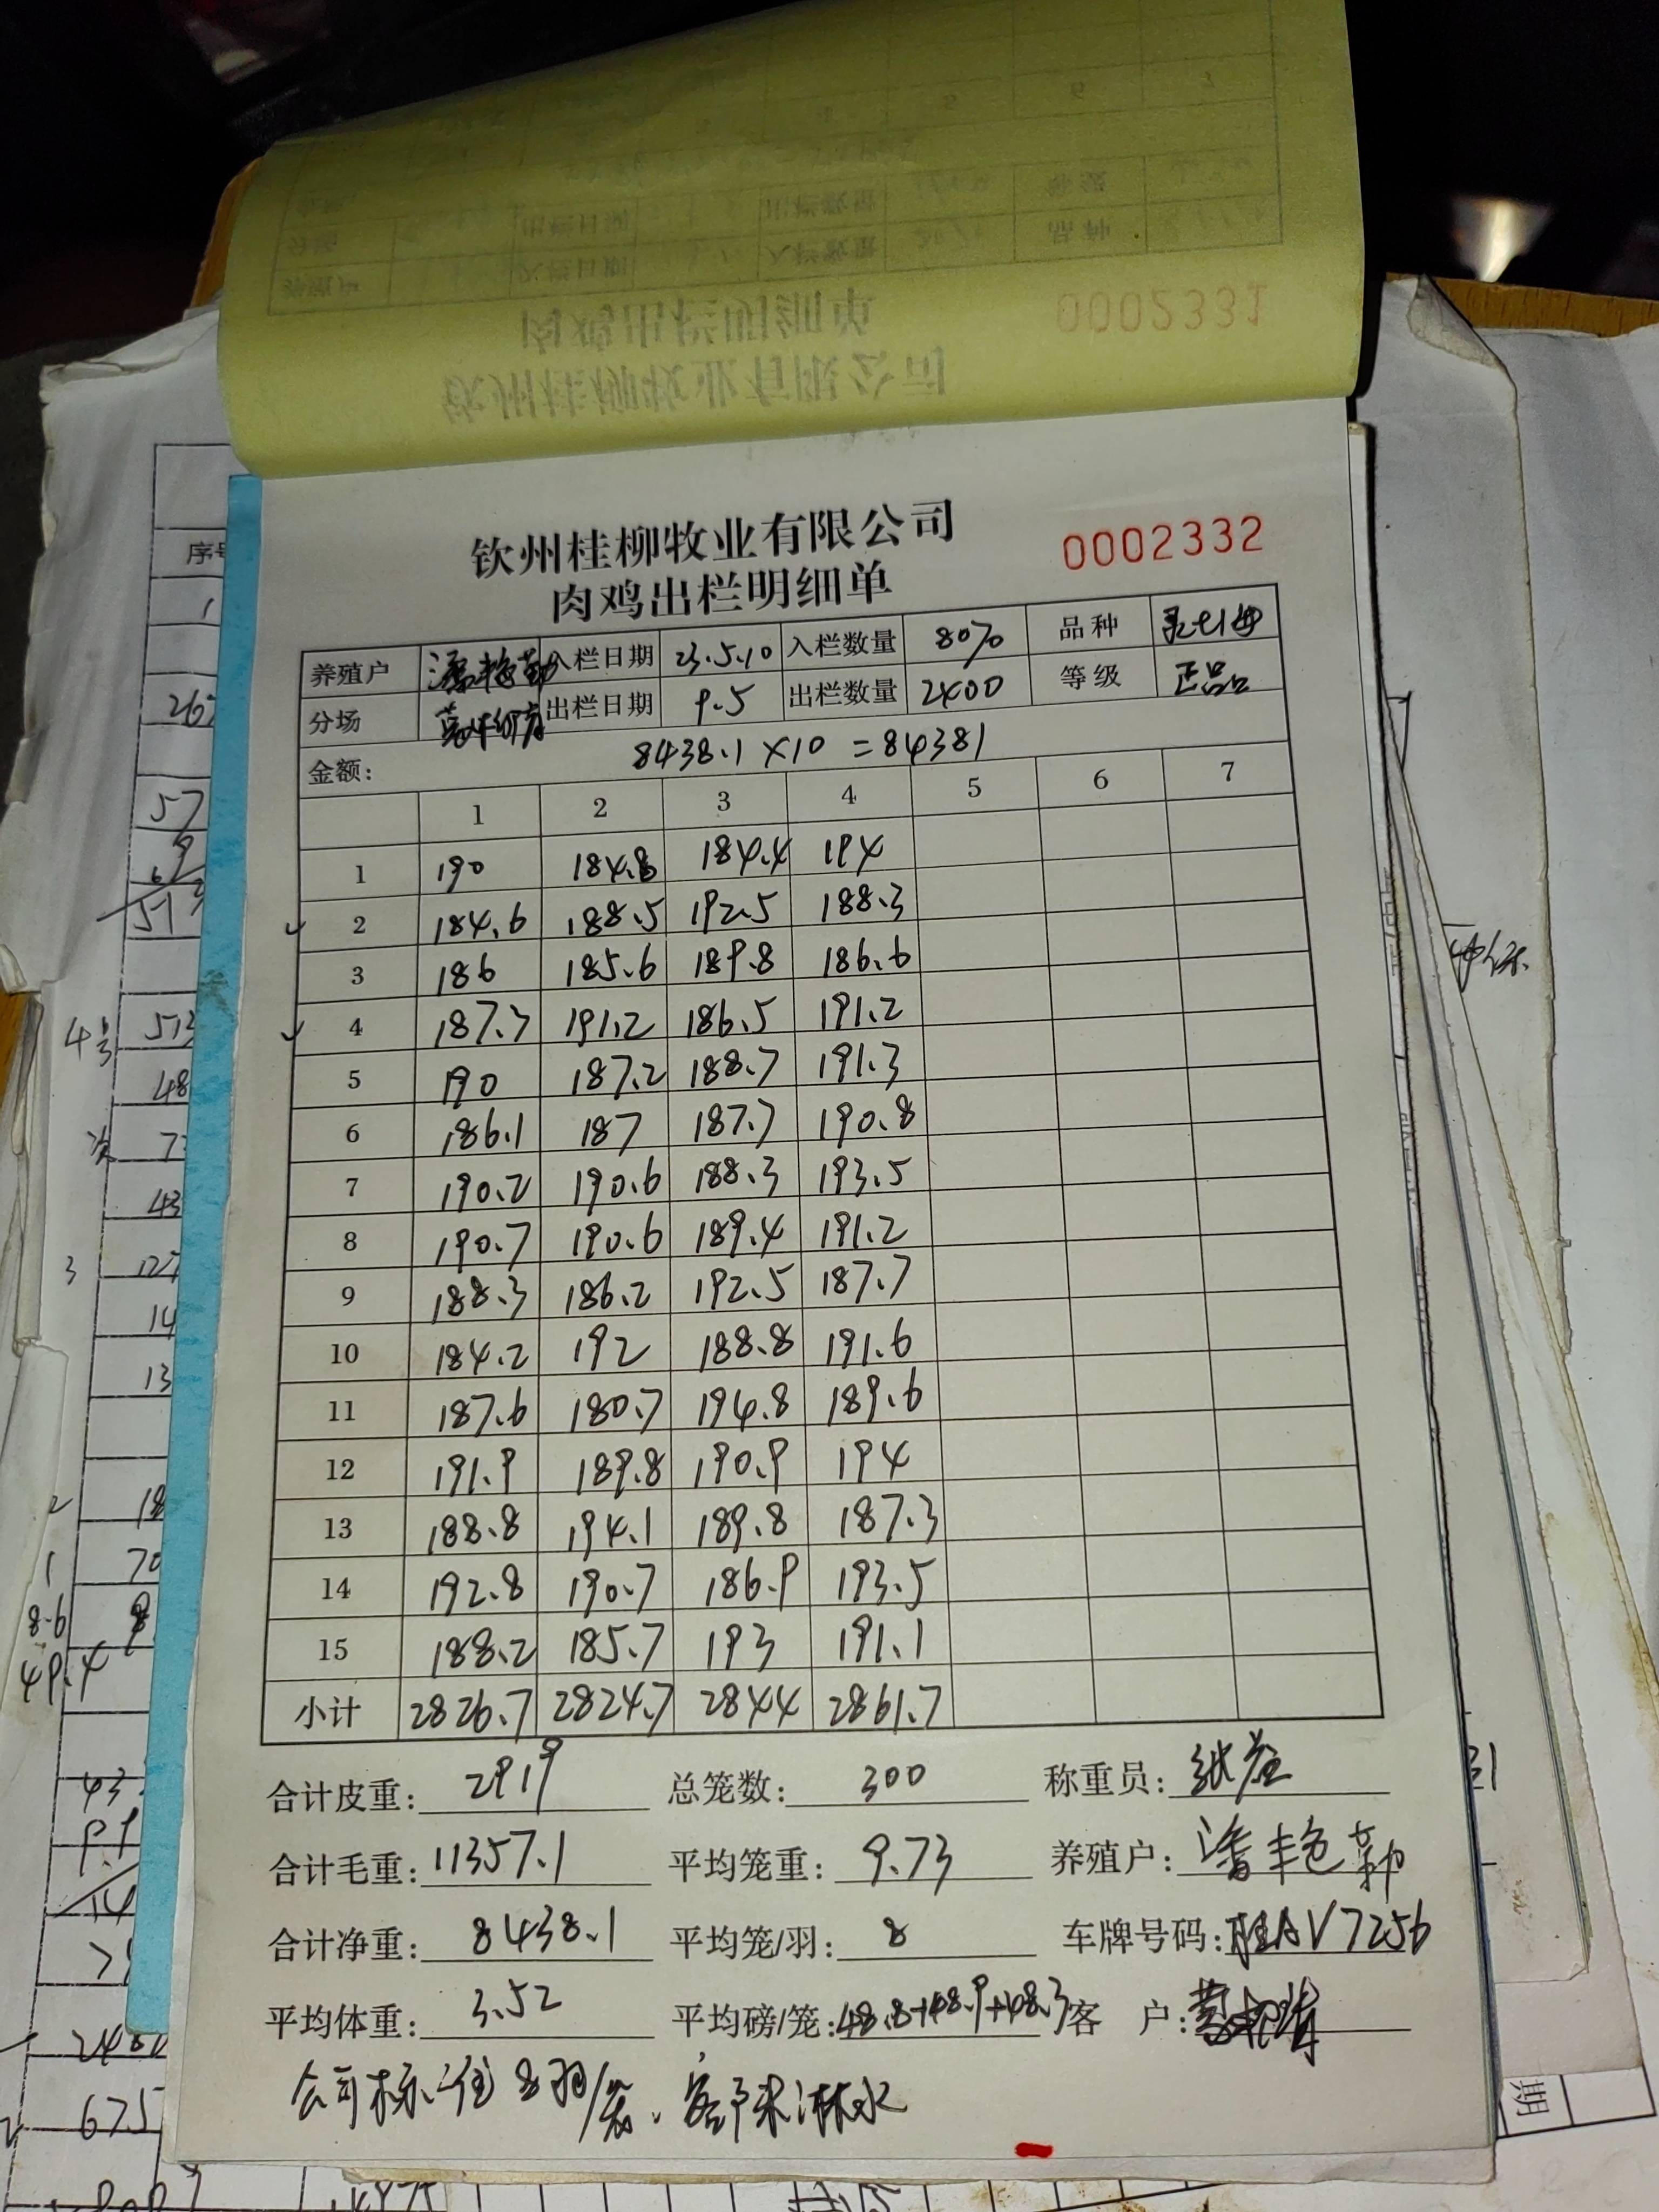 0002331
钦州桂柳牧业有限公司
0002332
肉鸡出栏明细单
养殖户 入栏日期 23.5.10 入栏数量 80% 品种
分场 出栏日期 9.5 出栏数量 2400 等级 正品
金额: 8438.1×10=84381
1 2 3 4 5 6 7
1 190 184.8 184.4 194
2 184.6 188.5 192.5 188.3
3 186 185.6 189.8 186.6
4 187.7 191.2 186.5 191.2
5 190 187.2 188.7 191.3
6 186.1 187 187.7 190.8
7 190.2 190.6 188.3 193.5
8 190.7 190.6 189.4 191.2
9 188.3 186.2 192.5 187.7
10 184.2 192 188.8 191.6
11 187.6 180.7 194.8 189.6
12 191.9 189.8 190.9 194
13 188.8 194.1 189.8 187.3
14 192.8 190.7 186.9 193.5
15 188.2 185.7 193 191.1
小计 2826.7 2824.7 2844 2861.7
合计皮重: 2919 总笼数: 300 称重员:
合计毛重: 11357.1 平均笼重: 9.73 养殖户: 潘艳勤
合计净重: 8438.1 平均笼/羽: 8 车牌号码: 桂AV7256
平均体重: 3.52 平均磅/笼: 48.8+48.9+48.3 客 户:
公司标准8羽/笼、客户未淋水